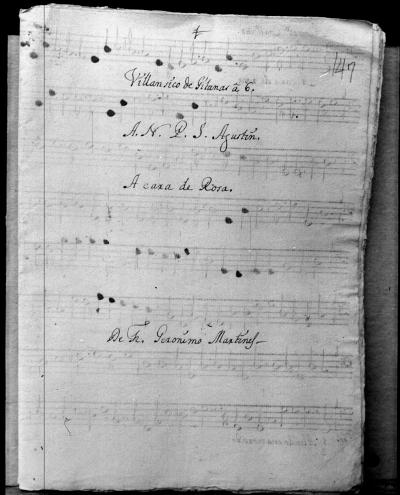 147
Villansico de Gitanas â 6.
A. N. P. S. Agustin.
A cara de Rosa.
De Fr. Geronimo Martines